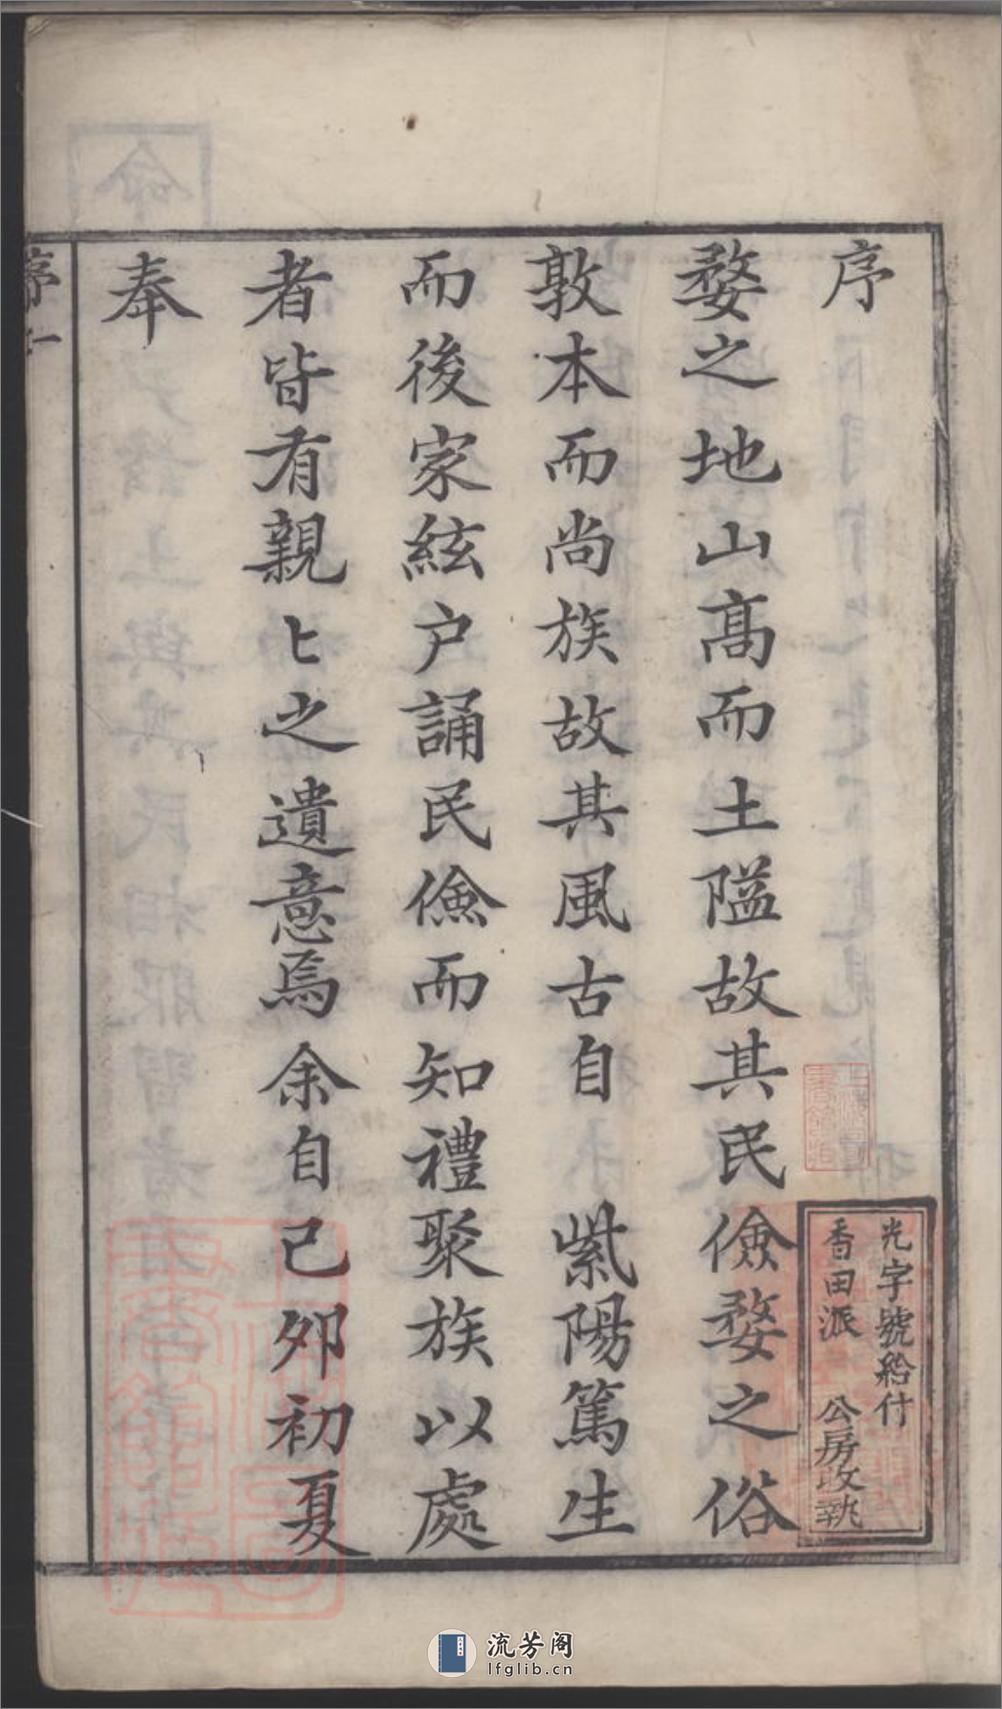 序
婺之地山高而土隘故其民儉婺之俗
敦本而尚族故其風古自　紫陽篤生
而後家絃户誦民儉而知禮聚族以處
者皆有親〻之遺意焉余自己夘初夏
奉
序 一
光字號給付
香田派　公房收執
上海圖書館藏
流芳阁
lfglib.cn